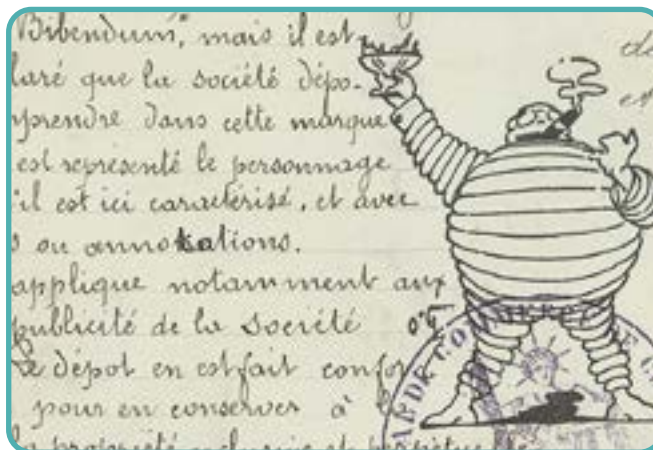 "Bibendum", mais il est
laré que la société dépo-
mprendre dans cette marque
est représenté le personnage
'il est ici caractérisé, et avec
s ou annotations.
applique notamment aux
publicité de la société
Le dépot en est fait confor
pour en conserver à
la propriété exclusive et perpétuelle
DE COMMERCE DE C